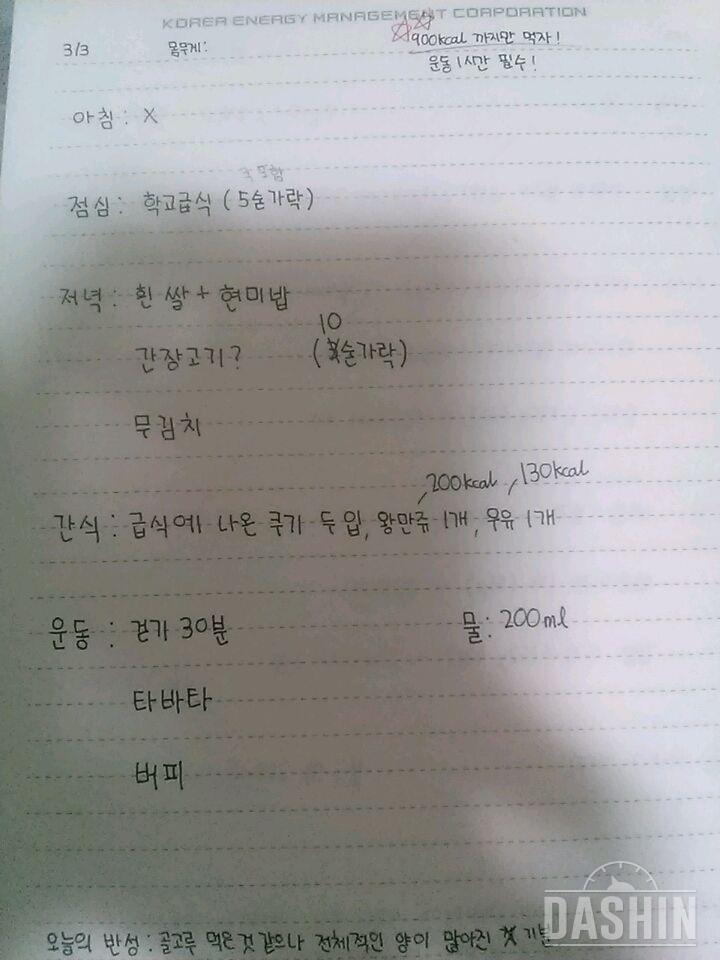 KOREA ENERGY MANAGEMENT CORPORATION
3/3 몸무게: 900kcal 까지만 먹자!
운동 1시간 필수!
아침: X
국 포함
점심: 학교급식 (5숟가락)
저녁: 흰 쌀 + 현미밥
10
간장고기? (숟가락)
무김치
,200kcal ,130kcal
간식: 급식에 나온 쿠키 두 입, 왕만쥬 1개, 우유 1개
운동: 걷기 30분 물: 200ml
타바타
버피
오늘의 반성: 골고루 먹은 것 같으나 전체적인 양이 많아진 기분
DASHIN